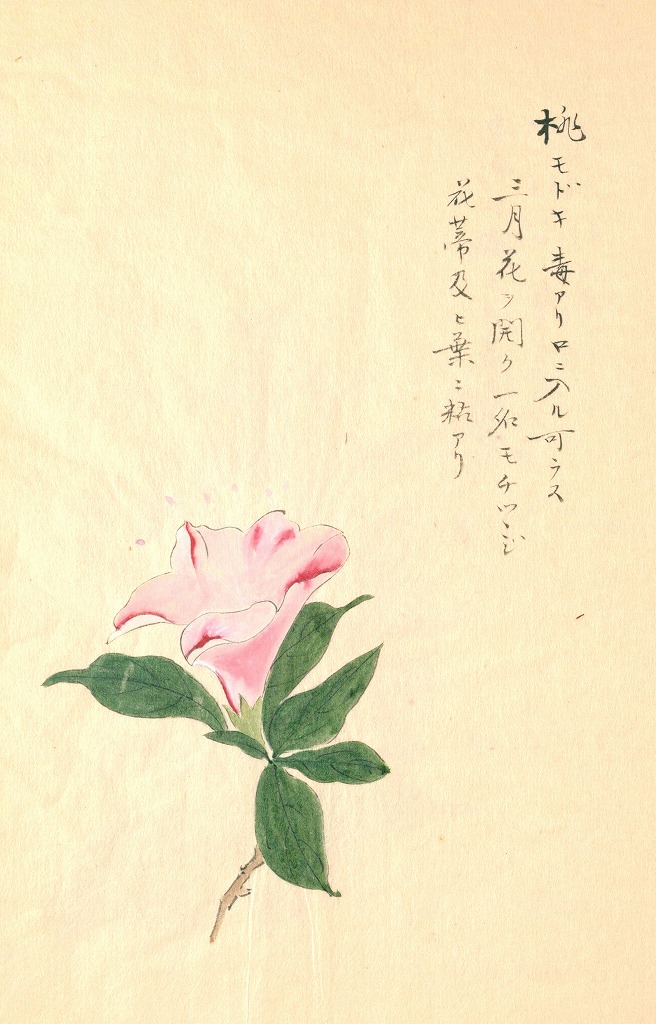 桃モドキ 毒アリ口ニ入ル可ラス
三月花ヲ開ク一名モチツヽジ
花蒂及ヒ葉ニ粘アリ